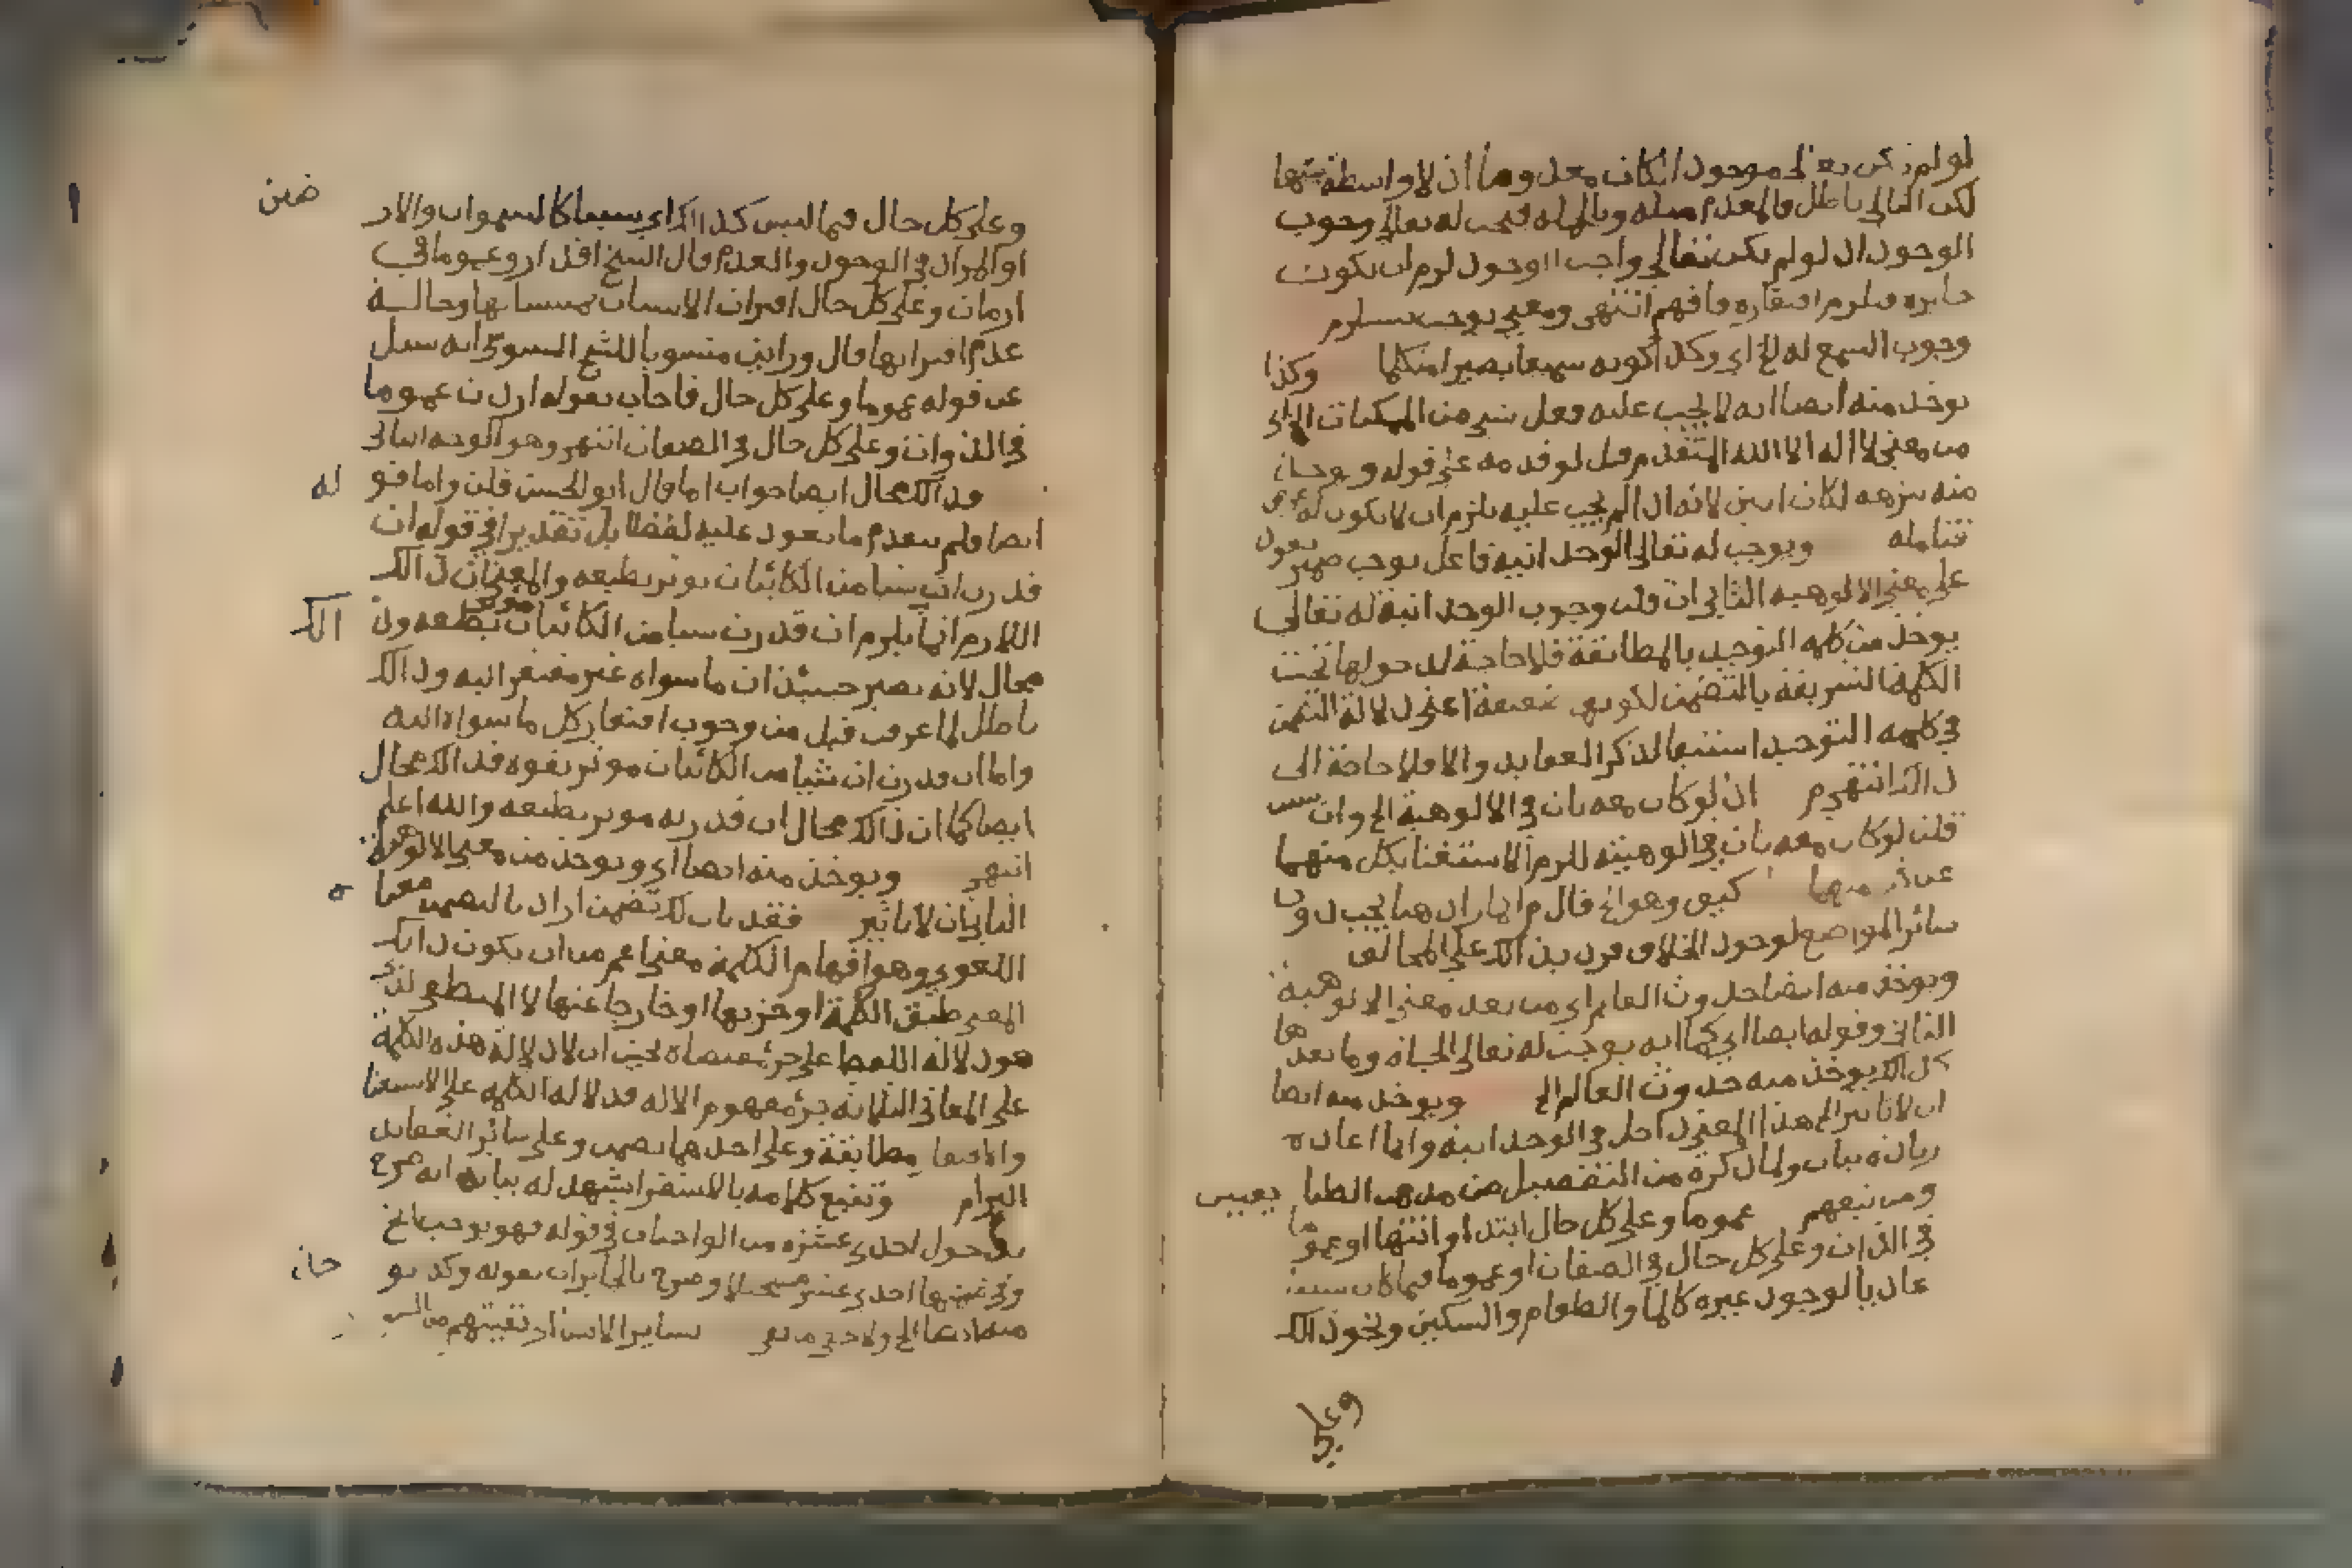 لو لم يكن تعالى موجودا لكان معدوما اذ لا واسطة بينهما
لكن التالي باطل فالمقدم مثله وبالجملة فيجب له تعالى وجوب
الوجود اذ لو لم يكن تعالى واجب الوجود لزم ان يكون
جايزه فيلزم افتقاره فافهم انتهى ومعنى يوجب يستلزم
وجوب السمع له الخ اي وكذا كونه سميعا بصيرا متكلما وكذا
يوخذ منه ايضا انه لا يجب عليه فعل شي من الممكنات الخ اي
من معنى لا اله الا الله المتقدم قيل لو قدمه على قوله ويوخذ
منه تنزهه لكان ابين لانه اذا لم يجب عليه يلزم ان لا يكون له غرض
فتامله ويوجب له تعالى الوحدانية فاعل يوجب ضمير يعود
على معنى الالوهية الثاني ان قلت وجوب الوحدانية له تعالى
يوخذ من كلمة التوحيد بالمطابقة فلا حاجة لدخولها تحت
الكلمة الشريفة بالتضمن لكونها ضعيفة اعني دلالة التضمن
في كلمة التوحيد استتبعا لذكر العقايد والا فلا حاجة الى
ذالك انتهى م اذ لو كان معه ثان في الالوهية الخ وان شيت
قلت لو كان معه ثان في الوهيته للزم الاستغنا بكل منهما
عن كل منهما كيف وهو الخ قال م
سائر المواضع لوجود الخلاف فرد بذالك على المخالف
ويوخذ منه ايضا حدوث العالم اي من بعد معنى الالوهية
الثاني وقوله ايضا اي كما انه يوجب له تعالى الحياة وما بعدها
كذالك يوخذ منه حدوث العالم الخ ويوخذ منه ايضا
ان لا تاثير الخ هذا المعنى داخل في الوحدانية وانما اعاده
زيادة بيان ولما ذكره من التفصيل من مذهب الطبايعيين
ومن تبعهم عموما وعلى كل حال ابتدا وانتها او عموما
في الذات وعلى كل حال في الصفات او عموما فيما كان سببا
عاديا لوجود غيره كالما والطعام والسكين ونحو ذالك
وعلى
وعلى كل حال فيما ليس كذالك اي سببا كالسموات والارضين
او المراد في الوجود والعدم قال الشيخ اقدار وعموما في
ازمان وعلى كل حال اقتران الاسباب بمسبباتها وحالة
عدم اقترانها قال ورايت منسوبا للشيخ السنوسي انه سيل
عن قوله عموما وعلى كل حال فاجاب بقوله اردت عموما
في الذوات وعلى كل حال في الصفات انتهى وهو الوجه الثاني
فذالك محال ايضا جواب اما قال ابو الحسن قلت واما قوله
ايضا فلم يتقدم ما يعود عليه لفظا بل تقديرا في قوله ان
قدرت ان شيا من الكائنات يوثر بطبعه والمعنى ان ذالك
اللازم انما يلزم ان قدرت شيا من الكائنات موثر بطبعه وذالك
محال لانه يصير حينئذ ان ما سواه غير مفتقر اليه وذالك
باطل لما عرفت قبل من وجوب افتقار كل ما سواه اليه
واما ان قدرت ان شيا من الكائنات موثر بقوة فذالك محال
ايضا كما ان ذالك محال ان قدرته موثر بطبعه والله اعلم
انتهى ويوخذ منه ايضا اي ويوخذ من معنى الالوهية
الثاني ان لا تاثير فقد بان لك تضمن اراد بالتضمن معناه
اللغوي وهو افهام الكلمة معنى اعم من ان يكون ذالك
المعنى طبق الكلمة او جزئها او خارجا عنها لا المنطقي الذي
هو دلالة اللفظ على جزء معناه بحيث ان لا دلالة هذه الكلمة
على المعاني الثلاثة جزء مفهوم الاله فدلالة الكلمة على الاستغنا
والافتقار مطابقة وعلى احدهما تضمن وعلى سائر العقايد
التزام وتتبع كلامه بالاستقرا يشهد له بيانه انه صرح
بدخول احدى عشرة من الواجبات في قوله فهو يوجب الخ
وفي ضمنها احدى عشر مستحيلا وصرح بالجايزات بقوله وكذا يوخذ
منه ايضا الخ سايرا لانبيا